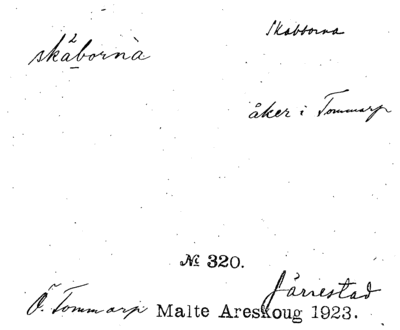 skåborna
Skabborna
åker i Tommarp
№ 320.
Järrestad
Ö. Tommarp Malte Areskoug 1923.